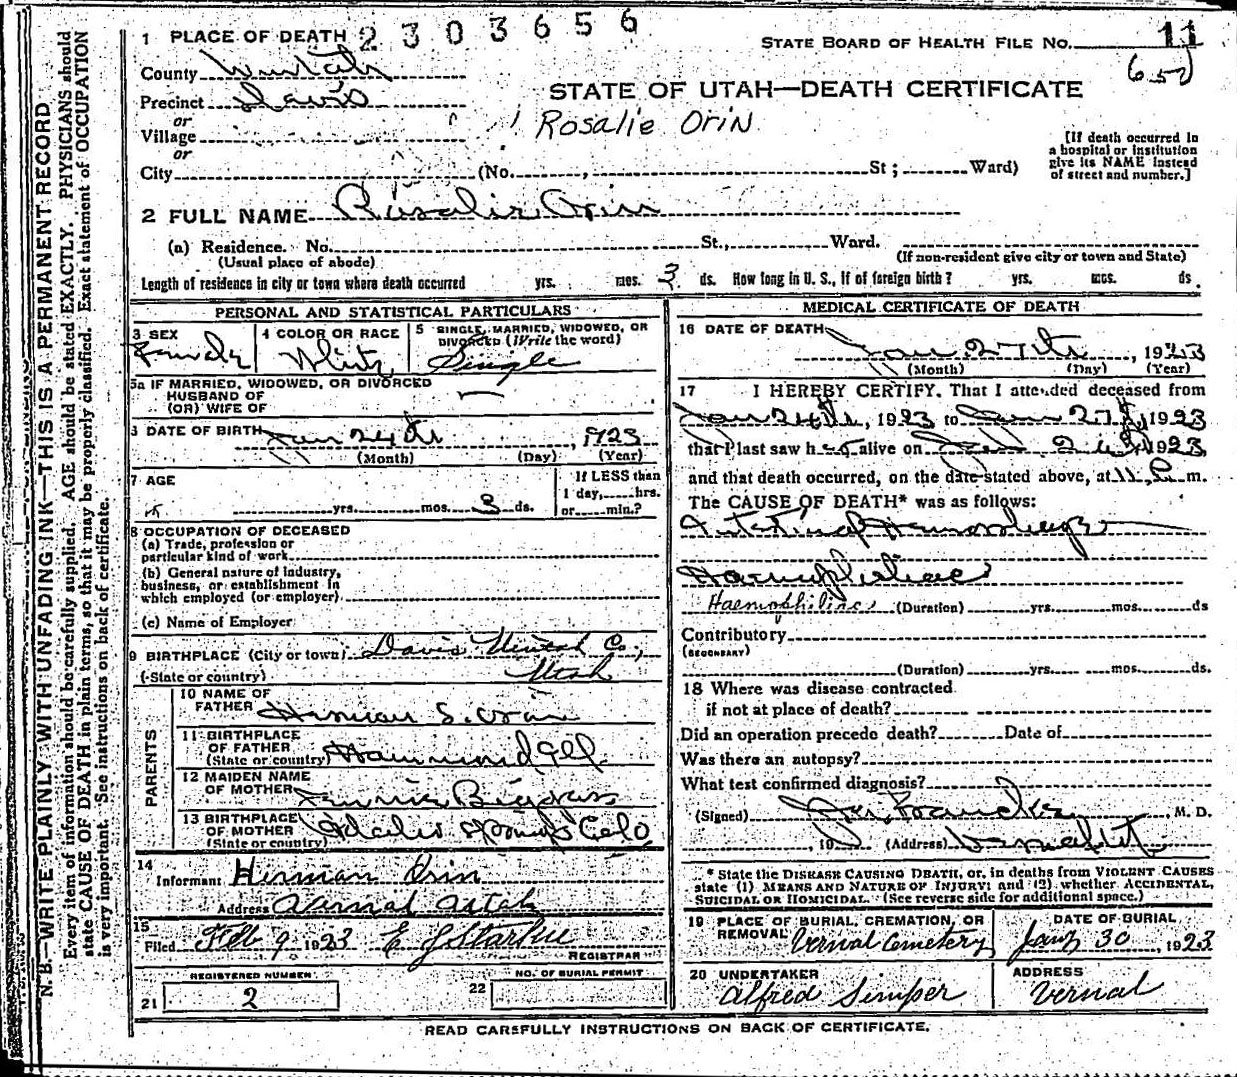 1 PLACE OF DEATH 2303656
STATE BOARD OF HEALTH FILE NO. 11
650
County Uintah
Precinct Davis
or
Village
or
City (No. , St; Ward)
STATE OF UTAH—DEATH CERTIFICATE
Rosalie Orin
[If death occurred in
a hospital or institution
give its NAME instead
of street and number.]
2 FULL NAME Rosalie Orin
(a) Residence. No. St., Ward.
(Usual place of abode) (If non-resident give city or town and State)
Length of residence in city or town where death occurred yrs. mos. 3 ds. How long in U. S., if of foreign birth? yrs. mos. ds.
PERSONAL AND STATISTICAL PARTICULARS
3 SEX Female
4 COLOR OR RACE White
5 SINGLE, MARRIED, WIDOWED, OR
DIVORCED (Write the word)
Single
5a IF MARRIED, WIDOWED, OR DIVORCED
HUSBAND OF
(OR) WIFE OF
6 DATE OF BIRTH Jan 24th, 1923
(Month) (Day) (Year)
7 AGE
yrs. mos. 3 ds.
If LESS than
1 day, hrs.
or min.?
8 OCCUPATION OF DECEASED
(a) Trade, profession or
particular kind of work
(b) General nature of industry,
business, or establishment in
which employed (or employer)
(c) Name of Employer
9 BIRTHPLACE (City or town) Davis Uintah Co.,
(State or country) Utah
PARENTS
10 NAME OF
FATHER Herman S. Orin
11 BIRTHPLACE
OF FATHER
(State or country) Hammond, Ill.
12 MAIDEN NAME
OF MOTHER Fannie
13 BIRTHPLACE
OF MOTHER
(State or country) Idaho Springs Colo
14
Informant Herman Orin
Address Vernal Utah
15
Filed Feb 9 1923 E J Starkie
REGISTRAR
REGISTERED NUMBER
21 2
NO. OF BURIAL PERMIT
22
MEDICAL CERTIFICATE OF DEATH
16 DATE OF DEATH
Jan 27th, 1923
(Month) (Day) (Year)
17 I HEREBY CERTIFY, That I attended deceased from
Jan 24th, 1923 to Jan 27th, 1923
that I last saw her alive on Jan 26th, 1923,
and that death occurred, on the date stated above, at 11 P. m.
The CAUSE OF DEATH* was as follows:
Intestinal Hemorrhage
Haemophiliac
Haemophiliac (Duration) yrs. mos. ds
Contributory
(SECONDARY)
(Duration) yrs. mos. ds.
18 Where was disease contracted
if not at place of death?
Did an operation precede death? Date of
Was there an autopsy?
What test confirmed diagnosis?
(Signed) M. D.
, 19 (Address) Vernal Ut.
* State the DISEASE CAUSING DEATH, or, in deaths from VIOLENT CAUSES
state (1) MEANS AND NATURE OF INJURY; and (2) whether ACCIDENTAL,
SUICIDAL OR HOMICIDAL. (See reverse side for additional space.)
19 PLACE OF BURIAL, CREMATION, OR
REMOVAL Vernal Cemetery
DATE OF BURIAL
Jany 30, 1923
20 UNDERTAKER
Alfred Simper
ADDRESS
Vernal
READ CAREFULLY INSTRUCTIONS ON BACK OF CERTIFICATE.
N. B.—WRITE PLAINLY WITH UNFADING INK—THIS IS A PERMANENT RECORD
Every item of information should be carefully supplied. AGE should be stated EXACTLY. PHYSICIANS should
state CAUSE OF DEATH in plain terms, so that it may be properly classified. Exact statement of OCCUPATION
is very important. See instructions on back of certificate.